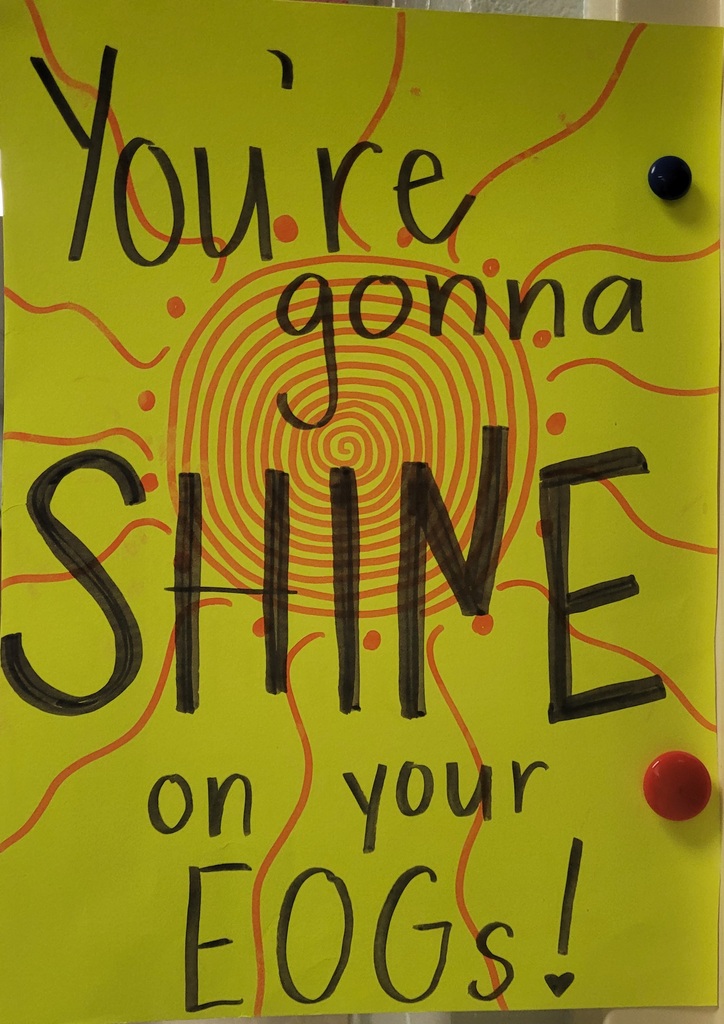 You're
gonna
SHINE
on your
EOGs!